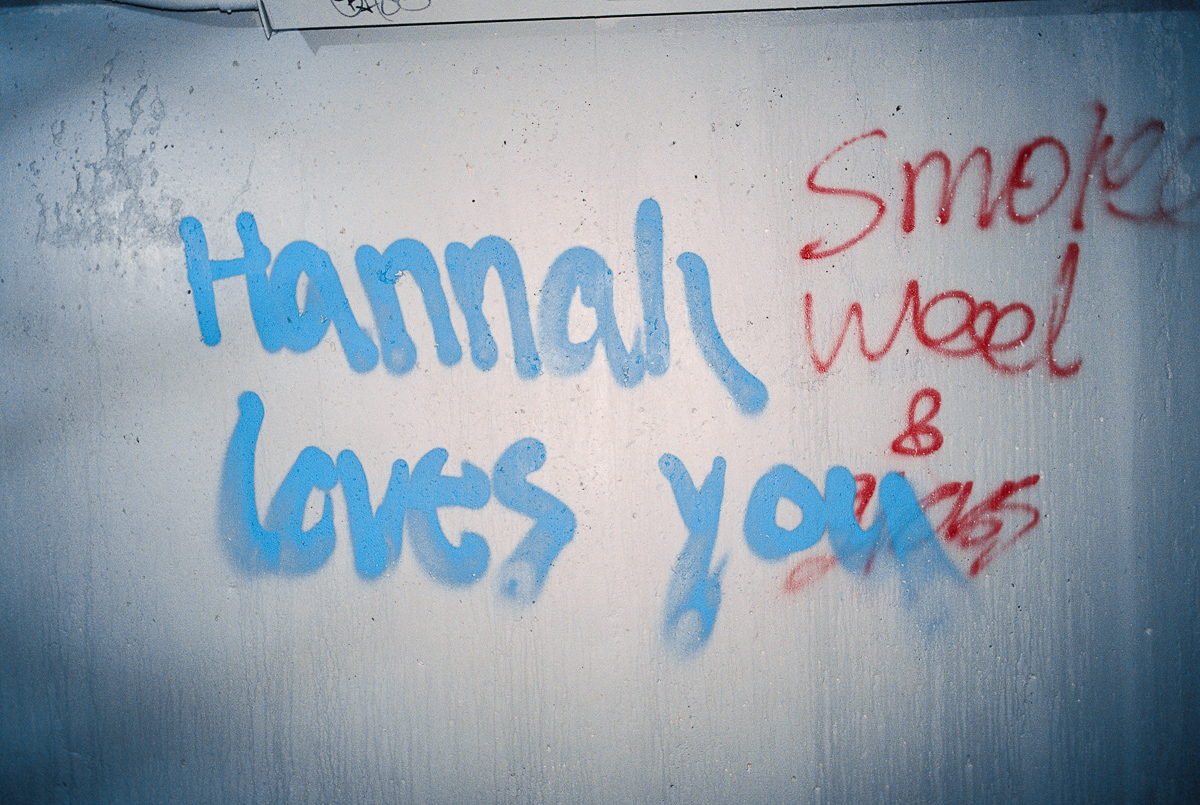 Hannah
loves you
Smoke
weed
&